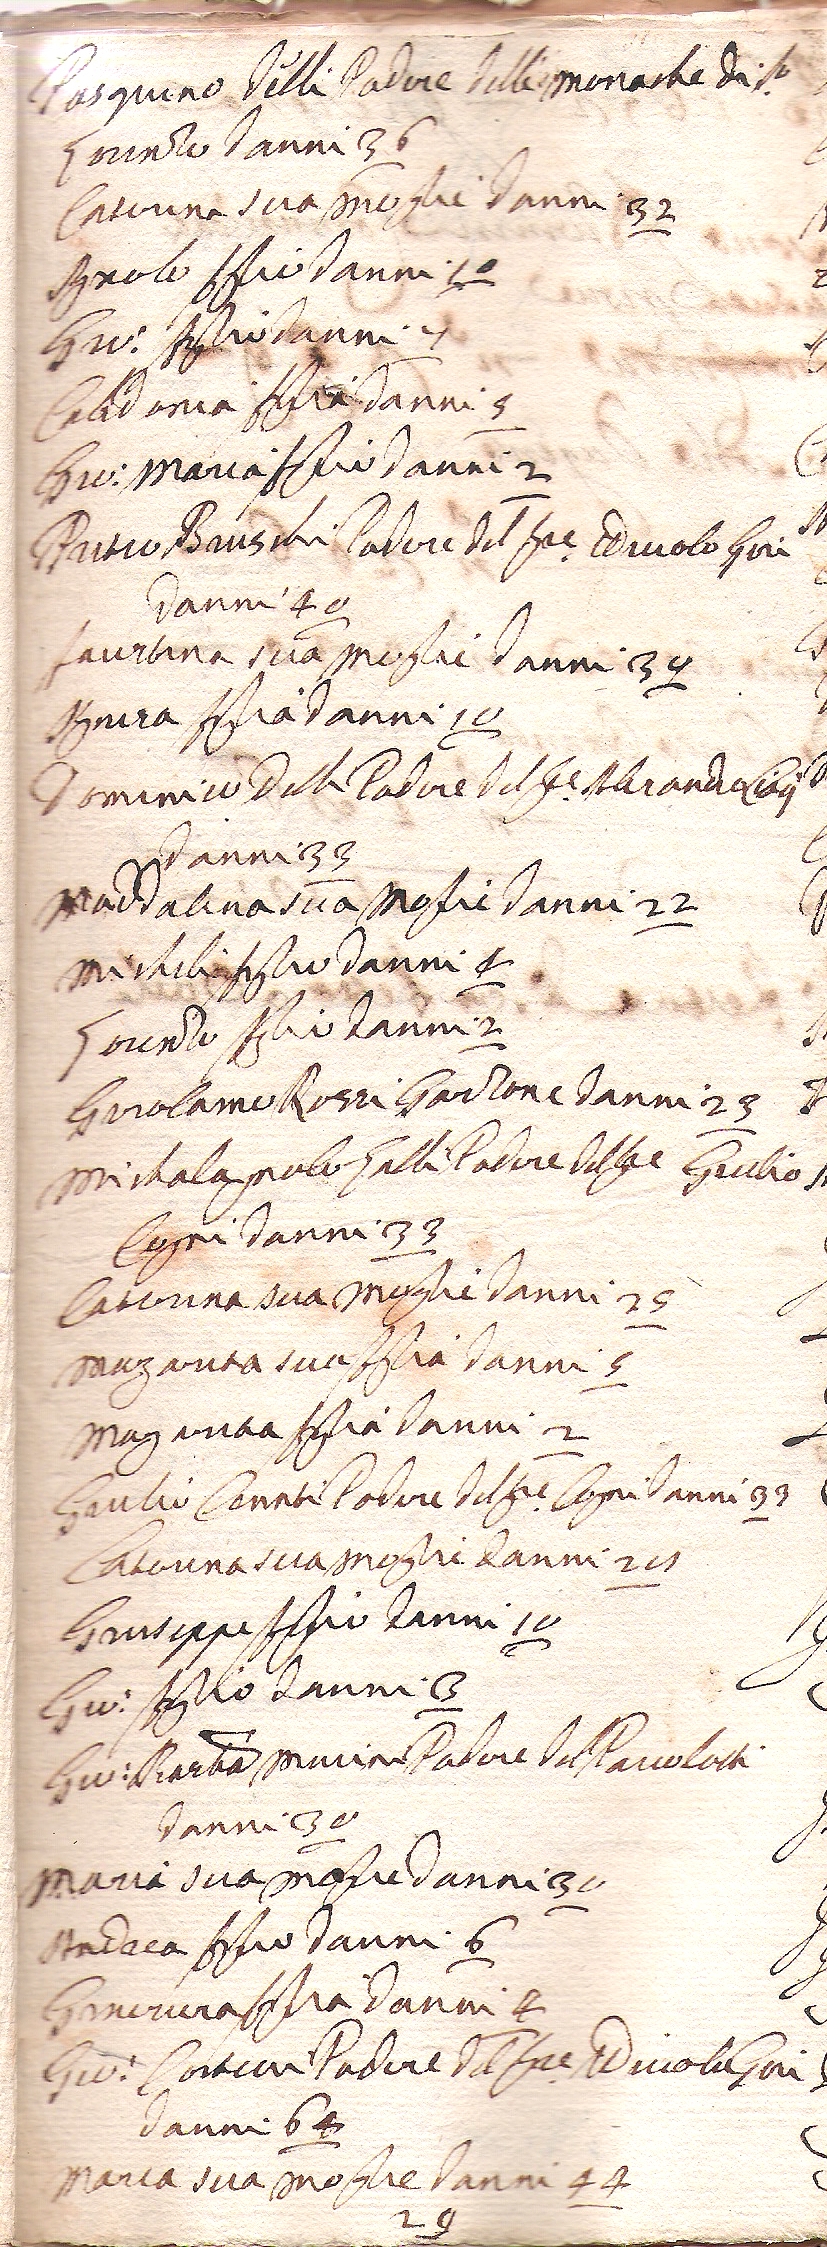 Pasquino Delli Podere delle monache di S.to
Lorenzo d anni 36
Caterina sua moglie d anni 32
Agnolo figlio d anni 10
Gio: figlio d anni 7
Calidonia figlia d anni 5
Gio: Maria figlio d anni 2
Pietro Bruschi Podere del Sre. Ed Nicolo Gori
d anni 40
Faustina sua moglie d anni 34
Agnesa figlia d anni 10
Domenico Delli Podere del Sre. Alisandro
d anni 33
Maddalena sua moglie d anni 22
Michele figlio d anni 4
Lorenzo figlio d anni 2
Girolamo Rossi Garzone d anni 23
Michelagnolo Galli Podere del Sre Giulio
Cogni d anni 33
Caterina sua moglie d anni 25
Margarita sua figlia d anni 5
Margarita figlia d anni 2
Giulio Cenni Podere del Sre. Cogni d anni 33
Caterina sua moglie d anni 24
Giuseppe figlio d anni 10
Gio: figlio d anni 3
Gio: Batta Podere del Pannolotti
d anni 30
Maria sua moglie d anni 30
Andrea figlio d anni 6
Ginevera figlia d anni 4
Gio: Podere del Sre Ed Nicolo Gori
d anni 64
Maria sua moglie d anni 44
29